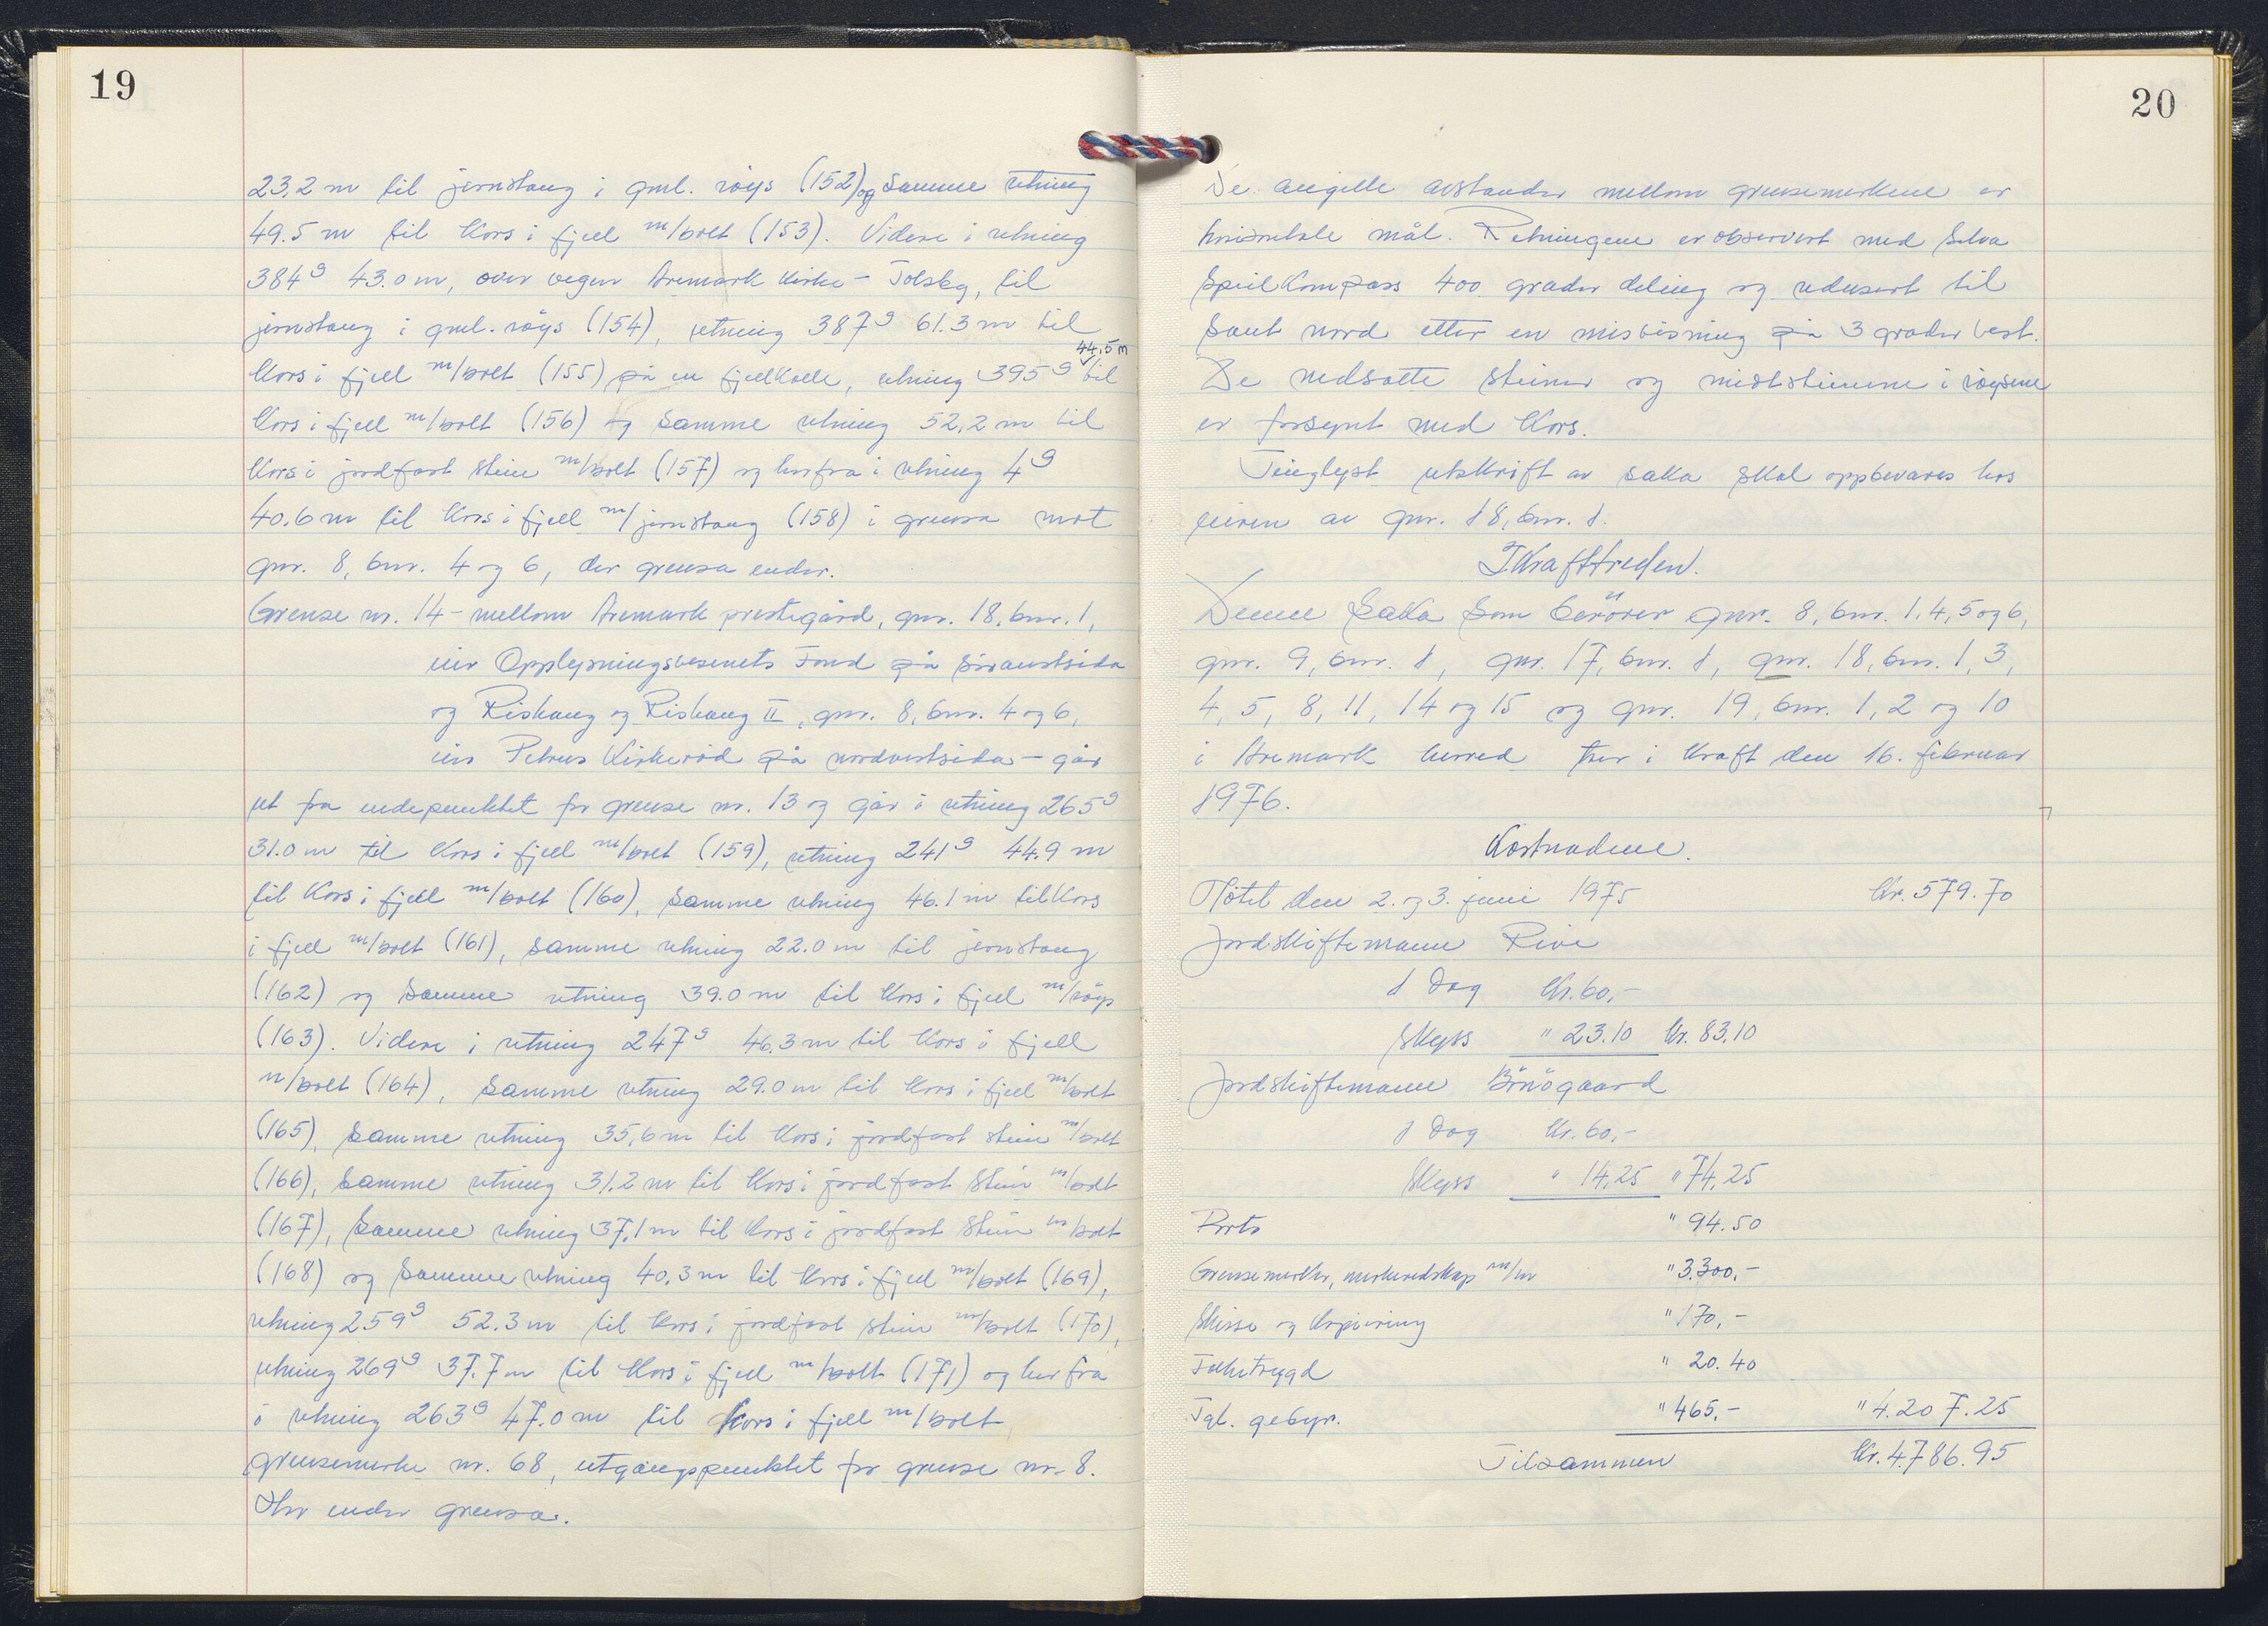 19
23,2 m til jernstang i gml. röys (152) og samme retning
49.5 m til kors i fjell m/bolt (153). Videre i retning
384g 43.0 m, over vegen Aremark kirke - Tolsby, til
jernstang i gml. röys (154), retning 387g 61.3 m til
44,5 m
kors i fjell m/bolt (155) på en fjellkolle, retning 395g til
kors i fjell m/bolt (156) og samme retning 52,2 m til
kors i jordfast stein m/bolt (157) og herfra i retning 4g
40.6 m til kors i fjell m/jernstang (158) i grensa mot
gnr. 8, bnr. 4 og 6, der grensa ender.
Grense nr. 14 - mellom Aremark prestegård, gnr. 18, bnr. 1,
eier Opplysningsvesenets Fond på söraustsida
og Rishaug og Rishaug II, gnr. 8, bnr. 4 og 6,
eier Petrus Kirkeröd på nordvestsida - går
ut fra endepunktet for grense nr. 13 og går i retning 265g
31.0 m til kors i fjell m/bolt (159), retning 241g 44.9 m
til kors i fjell m/bolt (160), samme retning 46.1 m til kors
i fjell m/bolt (161), samme retning 22.0 m til jernstang
(162) og samme retning 39.0 m til kors i fjell m/röys
(163). Videre i retning 247g 46.3 m til kors i fjell
m/bolt (164), samme retning 29.0 m til kors i fjell m/bolt
(165), samme retning 35,6 m til kors i jordfast stein m/bolt
(166), samme retning 31.2 m til kors i jordfast stein m/bolt
(167), samme retning 37,1 m til kors i jordfast stein m/bolt
(168) og samme retning 40,3 m til kors i fjell m/bolt (169),
retning 259g 52.3 m til kors i jordfast stein m/bolt (170),
retning 269g 37.7 m til kors i fjell m/bolt (171) og herfra
i retning 263g 47.0 m til kors i fjell m/bolt,
grensemerke nr. 68, utgangspunktet for grense nr. 8.
Her ender grensa.
20
De angitte avstander mellom grensemerkene er
horisontale mål. Retningene er observert med Silva
speilkompass 400 grader deling og redusert til
sant nord etter en misvisning på 3 grader vest.
De nedsatte steiner og midtsteinene i röysene
er forsynt med kors.
Tinglyst utskrift av saka skal oppbevares hos
eieren av gnr. 18, bnr. 1.
Ikrafttreden.
Denne saka som berörer gnr. 8, bnr. 1, 4, 5 og 6,
gnr. 9, bnr. 1, gnr. 17, bnr. 1, gnr. 18, bnr. 1, 3,
4, 5, 8, 11, 14 og 15 og gnr. 19, bnr. 1, 2 og 10
i Aremark herred trer i kraft den 16. februar
1976.
Kostnadene.
Hotel den 2. og 3. juni 1975 kr. 579.70
Jordskiftemann Rive
1 dag kr. 60,-
Skyss " 23.10 kr. 83.10
Jordskiftemann Brösgaard
1 dag kr. 60,-
Skyss " 14,25 " 74,25
Porto " 94.50
Grensemerker, merkeredskap m/m " 3.300,-
Skisse og kopiering " 170,-
Folketrygd " 20.40
Tgl. gebyr. " 465,- " 4.207.25
Tilsammen kr. 4.786.95